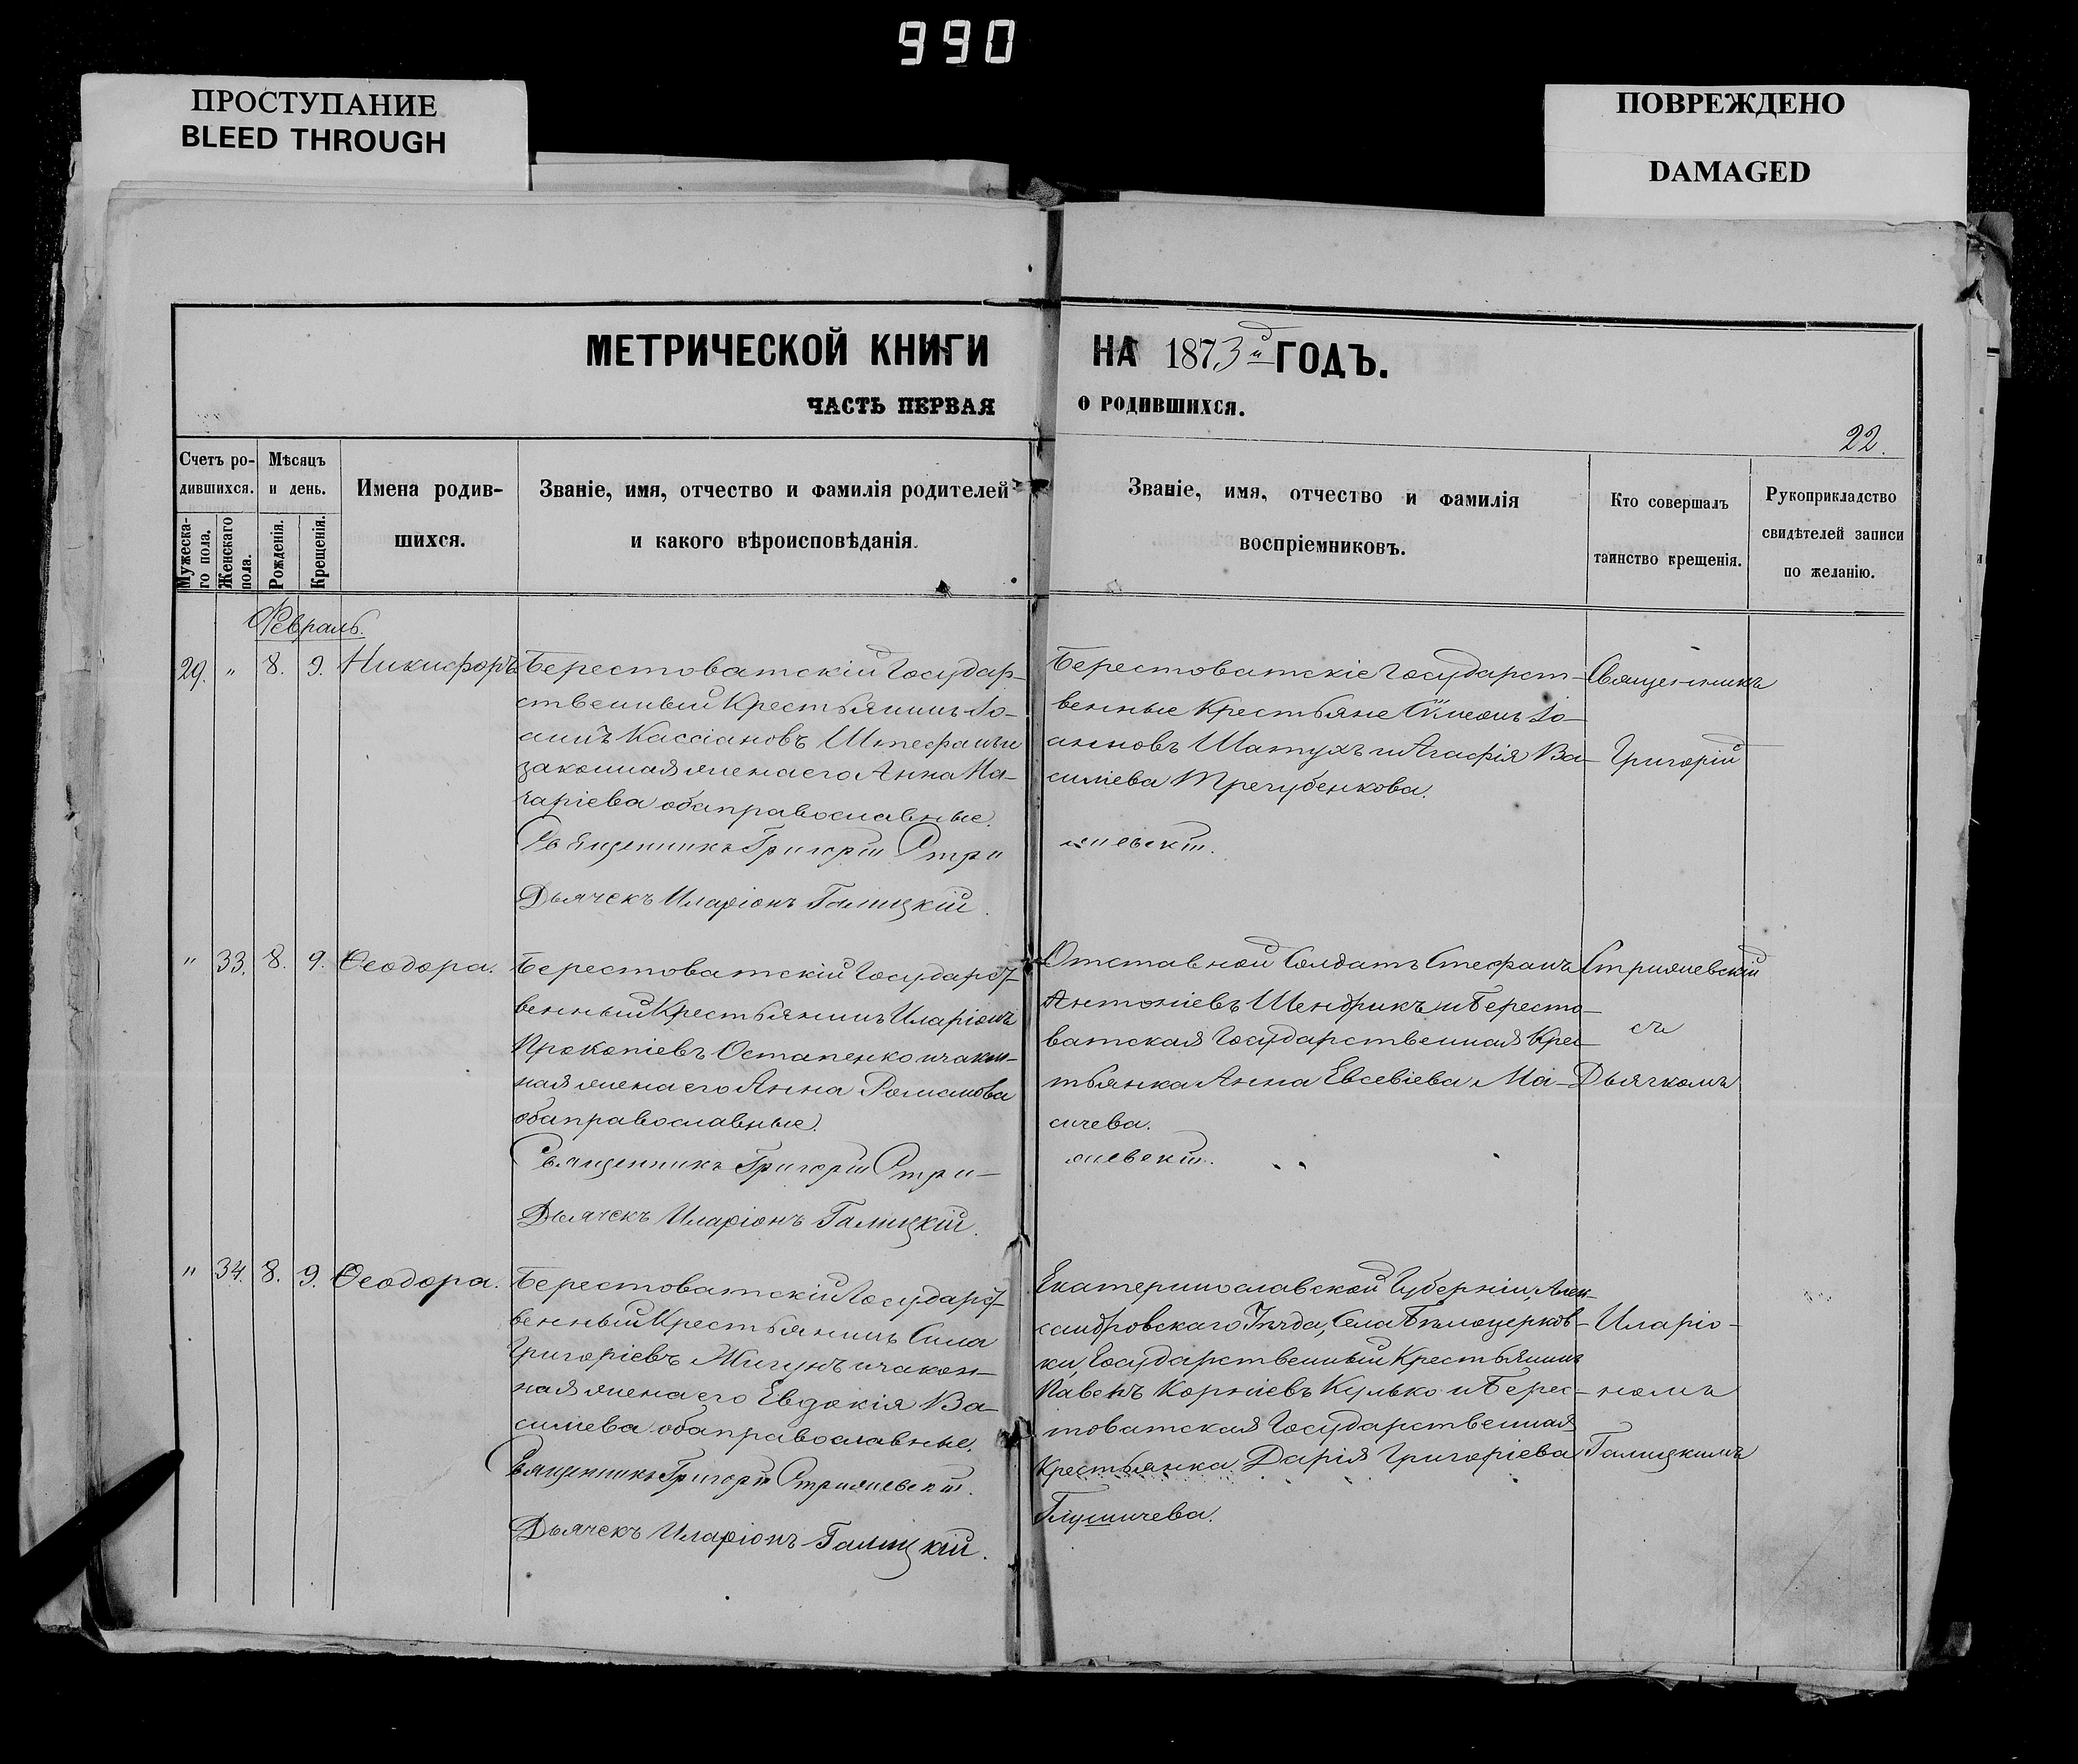 990
ПРОСТУПАНИЕ
BLEED THROUGH
ПОВРЕЖДЕНО
DAMAGED
МЕТРИЧЕСКОЙ КНИГИ НА 1873й ГОДЪ.
ЧАСТЬ ПЕРВАЯ О РОДИВШИХСЯ.
22.
Счетъ ро-
дившихся.
Мужеска-
го пола.
Женскаго
пола.
Мѣсяцъ
и день.
Рожденія.
Крещенія.
Имена родив-
шихся.
Званіе, имя, отчество и фамилія родителей
и какого вѣроисповѣданія.
Званіе, имя, отчество и фамилія
воспріемниковъ.
Кто совершалъ
таинство крещенія.
Рукоприкладство
свидѣтелей записи
по желанію.
Февраль.
29. " 8. 9. Никифоръ
Берестоватскій Государ-
ственный Крестьянинъ Іо-
аннъ Кассіановъ Штефанъ и
законная жена его Анна Ма-
каріева оба православные.
Священникъ Григорій Стри
жиевскій.
Дьячекъ Иларіонъ Галицкій.
Берестоватскіе Государст-
венные Крестьяне Сѵмеонъ Іо-
анновъ Шатухъ и Агафія Ва-
силіева Трегубенкова.
" 33. 8. 9. Ѳеодора.
Берестоватскій Государст-
венный Крестьянинъ Иларіонъ
Прокопіевъ Остапенко и закон-
ная жена его Анна Романова
оба православные.
Священникъ Григорій Стри-
жиевскій.
Дьячекъ Иларіонъ Галицкій.
Отставной Солдатъ Стефанъ
Антоніевъ Шендрикъ и Бересто-
ватская Государственная Крес-
тьянка Анна Евсевіева Ма-
сичева.
" 34. 8. 9. Ѳеодора.
Берестоватскій Государст-
венный Крестьянинъ Сила
Григоріевъ Жигунъ и закон-
ная жена его Евдокія Ва-
силіева оба православные.
Священникъ Григорій Стрижиевскій.
Дьячекъ Иларіонъ Галицкій.
Екатеринославской Губерніи, Алек-
сандровскаго Уѣзда, Села Бѣлоцерков-
ки, Государственный Крестьянинъ
Павелъ Корніевъ Кулько и Берес-
товатская Государственная
Крестьянка Дарія Григоріева
Глушичева.
Священникъ
Григорій
Стрижиевскій
съ
Дьячкомъ
Иларіо-
номъ
Галицкимъ